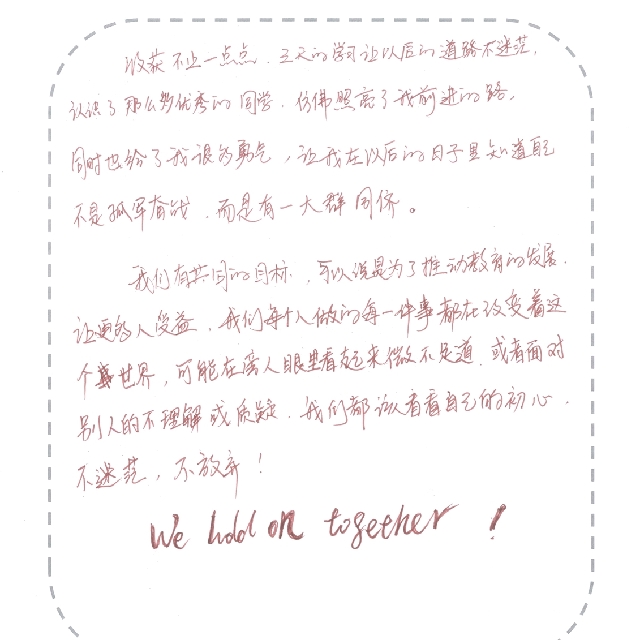 收获不止一点点，三天的学习让以后的道路不迷茫，
认识了那么多优秀的同学，仿佛照亮了我前进的路。
同时也给了我很多勇气，让我在以后的日子里知道自己
不是孤军奋战，而是有一大群同侪。
我们有共同的目标，可以说是为了推动教育的发展，
让更多人受益，我们每个人做的每一件事都在改变着这
个世界，可能在旁人眼里看起来微不足道，或者面对
别人的不理解或质疑，我们都该看看自己的初心，
不迷茫，不放弃！
We hold on together !